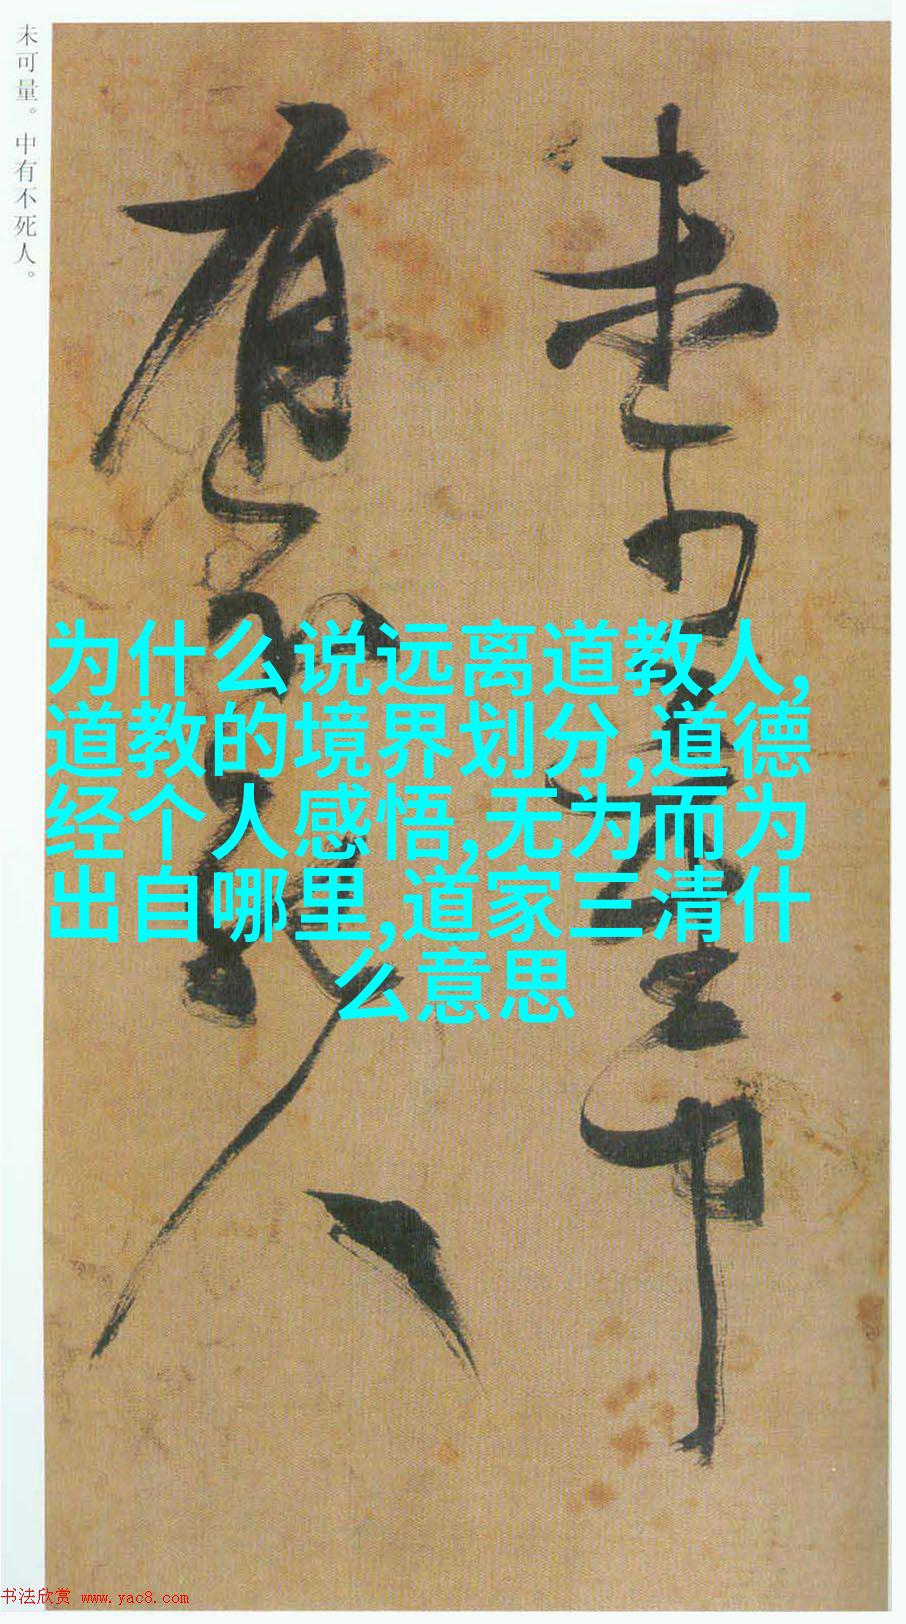 未可量。中有不死人。
未可量中
有不死人
为什么说远离道教人,
道教的境界划分,道德
经个人感悟,无为而为
出自哪里,道家三清什
么意思
书法欣赏 www.yac8.com